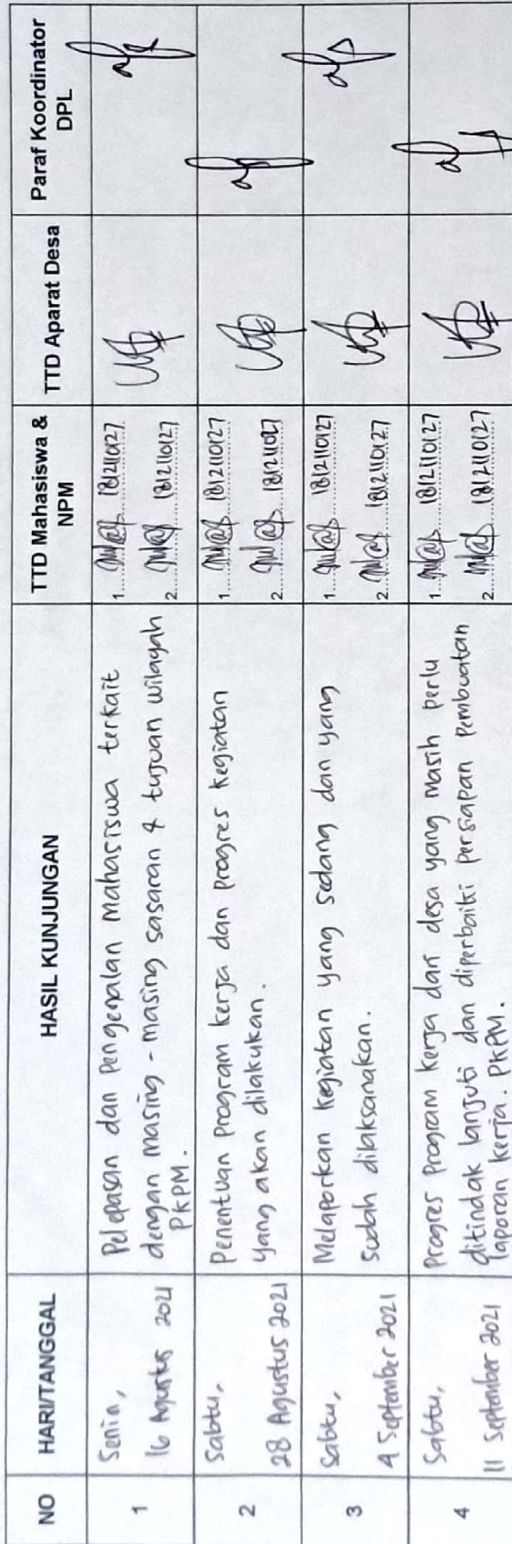 NO HARI/TANGGAL HASIL KUNJUNGAN TTD Mahasiswa & NPM TTD Aparat Desa Paraf Koordinator DPL
1
Senin,
16 Agustus 2021
Pelepasan dan Pengenalan Mahasiswa terkait
dengan masing - masing sasaran & tujuan wilayah
PKPM.
1. 1812110127
2. 1812110127
2
Sabtu,
28 Agustus 2021
Penentuan Program kerja dan Progres Kegiatan
yang akan dilakukan.
1. 1812110127
2. 1812110127
3
Sabtu,
4 September 2021
Melaporkan Kegiatan yang sedang dan yang
Sudah dilaksanakan.
1. 1812110127
2. 1812110127
4
Sabtu,
11 September 2021
Progres Program Kerja dari desa yang masih perlu
ditindak lanjuti dan diperbaiki persiapan Pembuatan
laporan Kerja. PKPM.
1. 1812110127
2. 1812110127